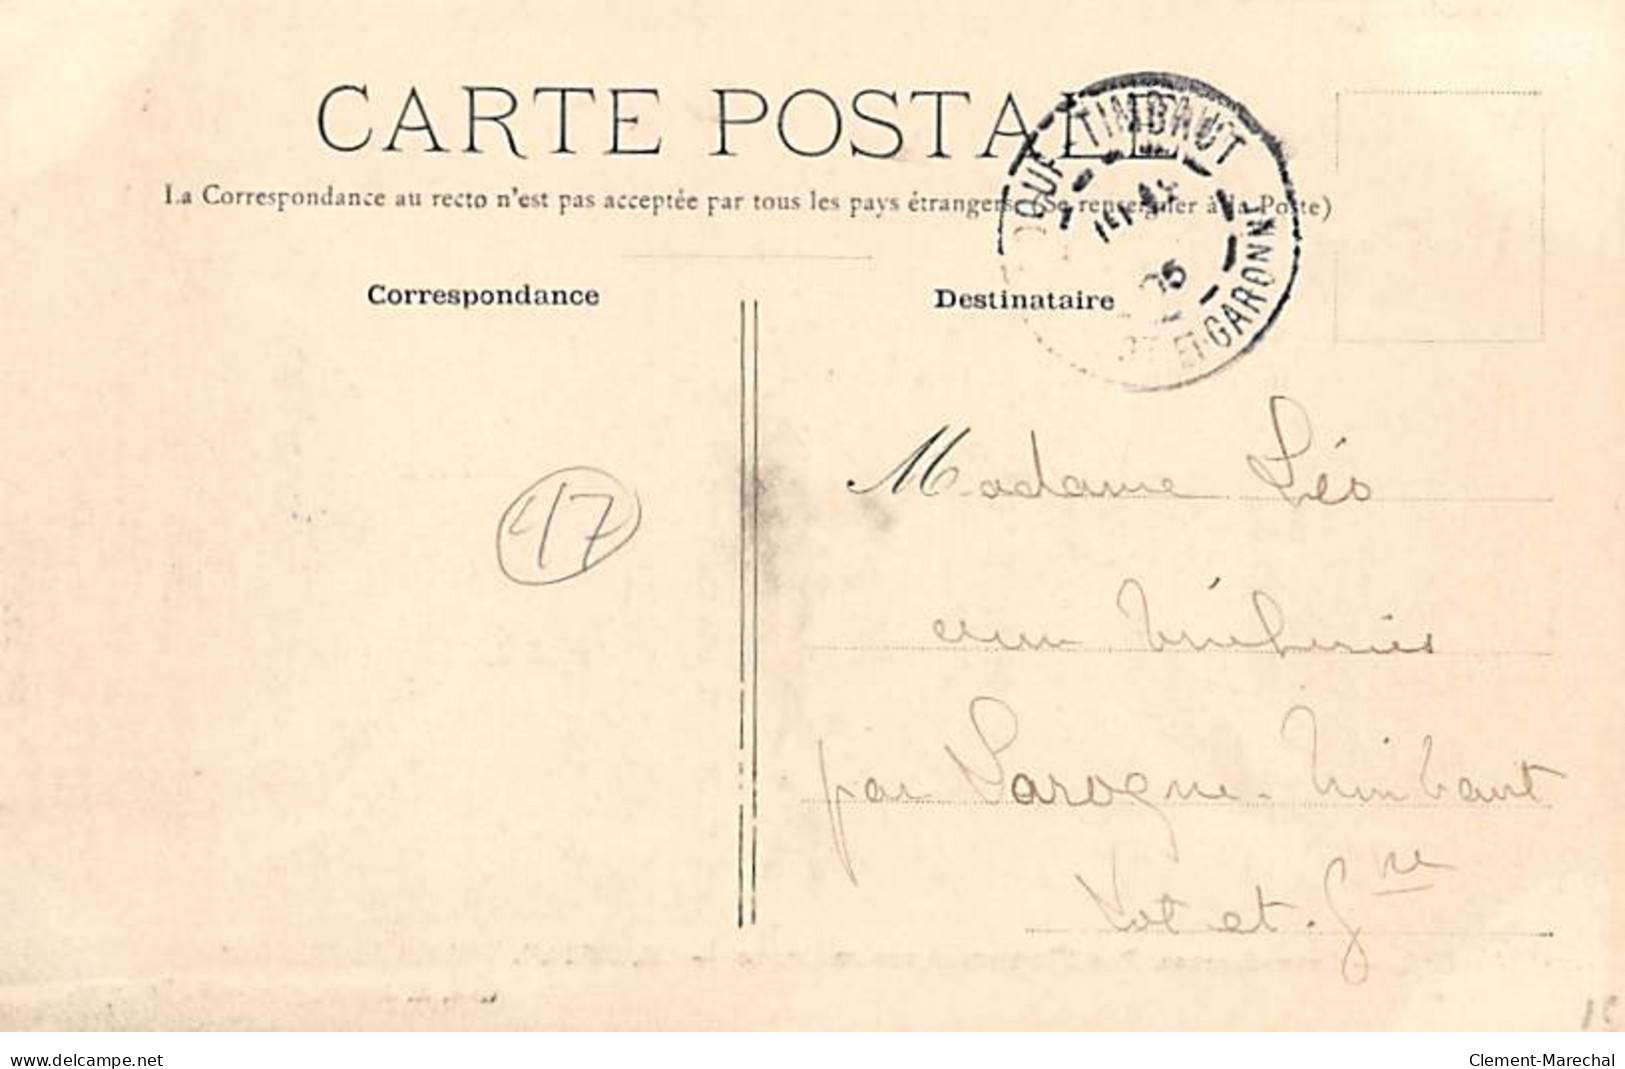 CARTE POSTALE
La Correspondance au recto n'est pas acceptée par tous les pays étrangers. (Se renseigner à la Poste)
Correspondance
Destinataire
TIMBAUT
05
ET-GARONNE
Madame Léo
47
par Laroque-Timbaut
Lot et Gne
www.delcampe.net
Clement-Marechal